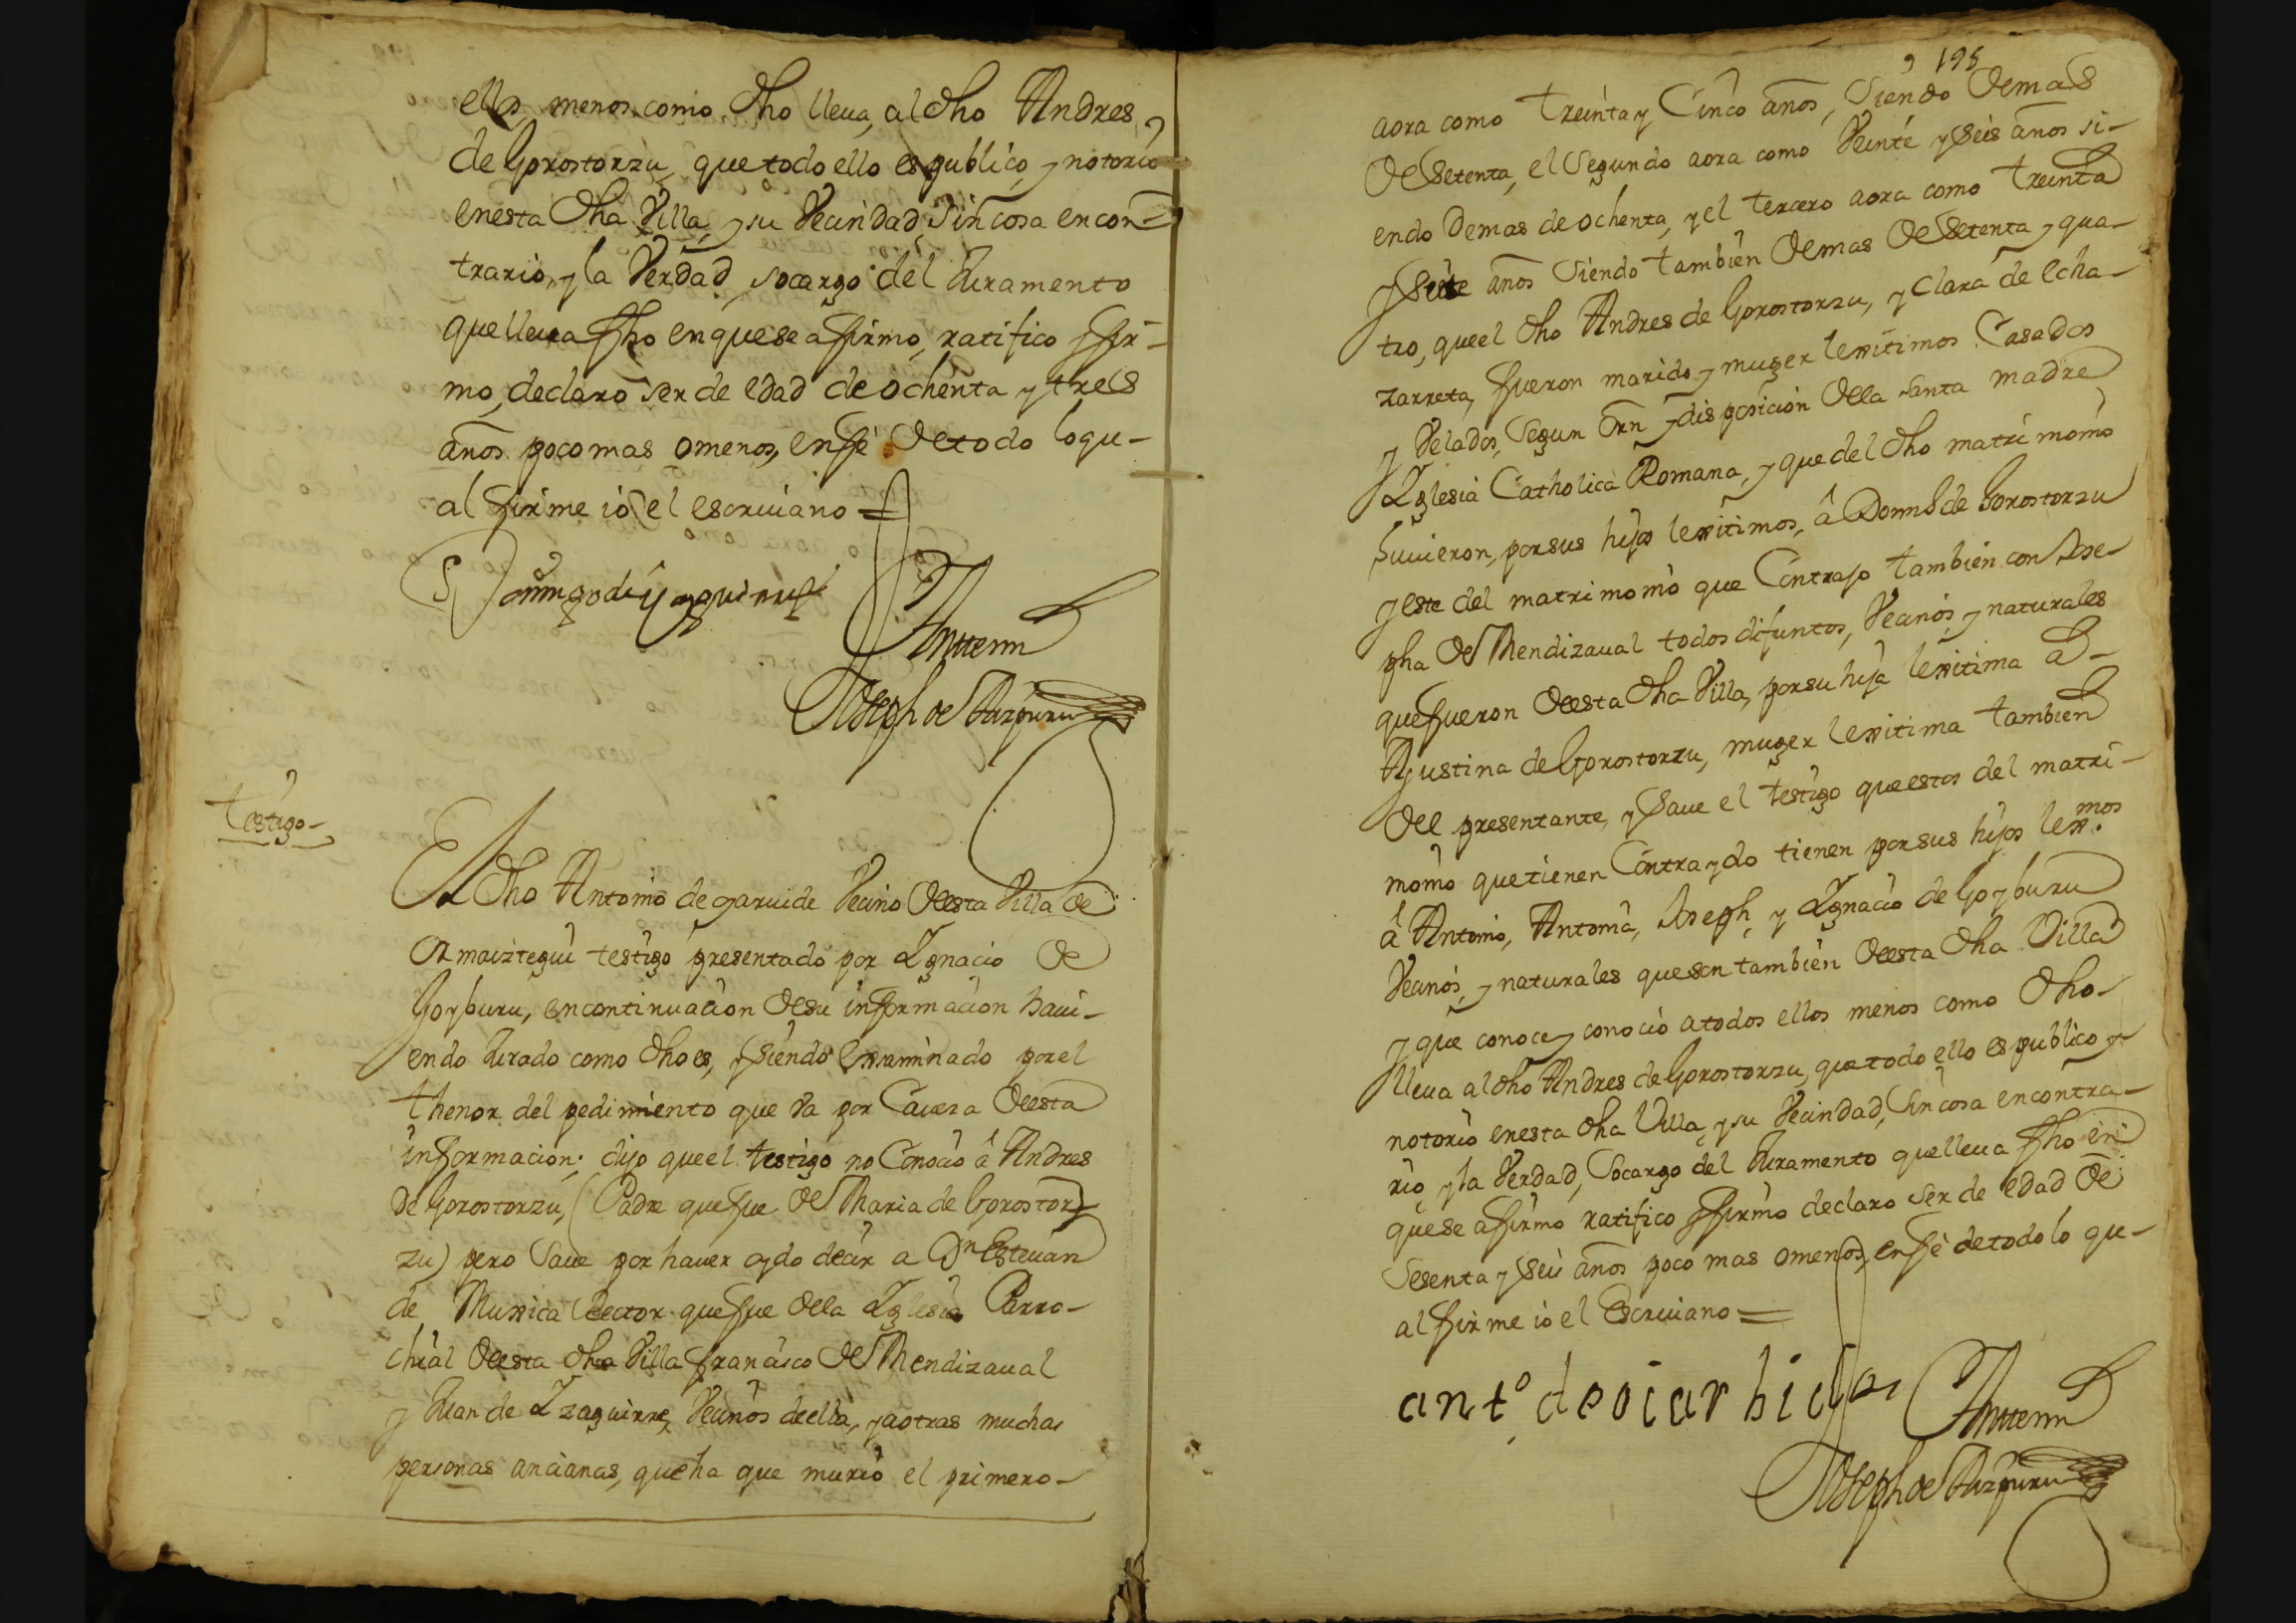 ellos, menos como dho lleua, al dho Andres,
de Gorostorzu, que todo ello es publico, y notorio
en esta dha Villa, y su Vecindad, Sin cosa en con-
trario, y la Verdad, socargo del Juramento
que lleua fho en que se affirmo, ratifico y fir-
mo, declaro ser de edad de ochenta y tres
años poco mas o menos, en fe de todo lo qu-
al firme io el escriuano =
Domingo de Yzaguirre
Antemi
Joseph de Aizpuru
testigo-
El dho Antonio de garuide Vecino desta Villa de
Ormaiztegui testigo presentado por Ygnacio de
Goyburu, en continuacion de su informacion haui-
endo Jurado como dho es, y siendo examinado por el
thenor del pedimiento que va por Caueza desta
informacion; dijo que el testigo no Conocio â Andres
de Gorostorzu, (Padre que fue de Maria de Gorostor-
zu) pero Saue por hauer oydo decir a Dn Esteuan
de Muxica Rector que fue dela Yglesia Parro-
chial desta dha Villa francisco de Mendizaual
y Juan de Yzaguirre, Vecinos de ella, y a otras muchas
personas ancianas, que ha que murio el primero-
195
aora como treinta y Cinco años, Siendo demas
de Setenta, el Segundo aora como Veinte y Seis años si-
endo demas de ochenta, y el tercero aora como treinta
y Siete años Siendo tambien demas de Setenta y qua-
tro, que el dho Andres de Gorostorzu, y Clara de Echa-
zarreta, fueron marido y muger lexitimos Casados
y Velados, Segun orn y disposicion dela santa madre
Yglesia Catholica Romana, y que del dho matrimonio
huuieron, por sus hijos lexitimos, â Domo de Gorostorzu
y este del matrimonio que Contrajo tambien con Jose-
pha de Mendizaual todos difuntos, Vecinos, y naturales
que fueron desta dha Villa, por su hija lexitima a-
Agustina de Gorostorzu, muger lexitima tambien
del presentante, y Saue el testigo que estos del matri-
monio que tienen Contraydo tienen por sus hijos lexmos
â Antonio, Antonia, Joseph, y Ygnacio de Goyburu
Vecinos, y naturales que son tambien desta dha Villa
y que conoce y conocio a todos ellos menos como dho-
lleua al dho Andres de Gorostorzu, que todo ello es publico y
notorio en esta dha Villa, y su Vecindad, Sin cosa en contra-
rio, y la Verdad, Socargo del Juramento que lleua fho en
que se afirmo ratifico y firmo declaro Ser de edad de
Sesenta y Seis años poco mas o menos, en fe de todo lo qu-
al firme io el Escriuano =
anto de oiarbide
Antemi
Joseph de Aizpuru